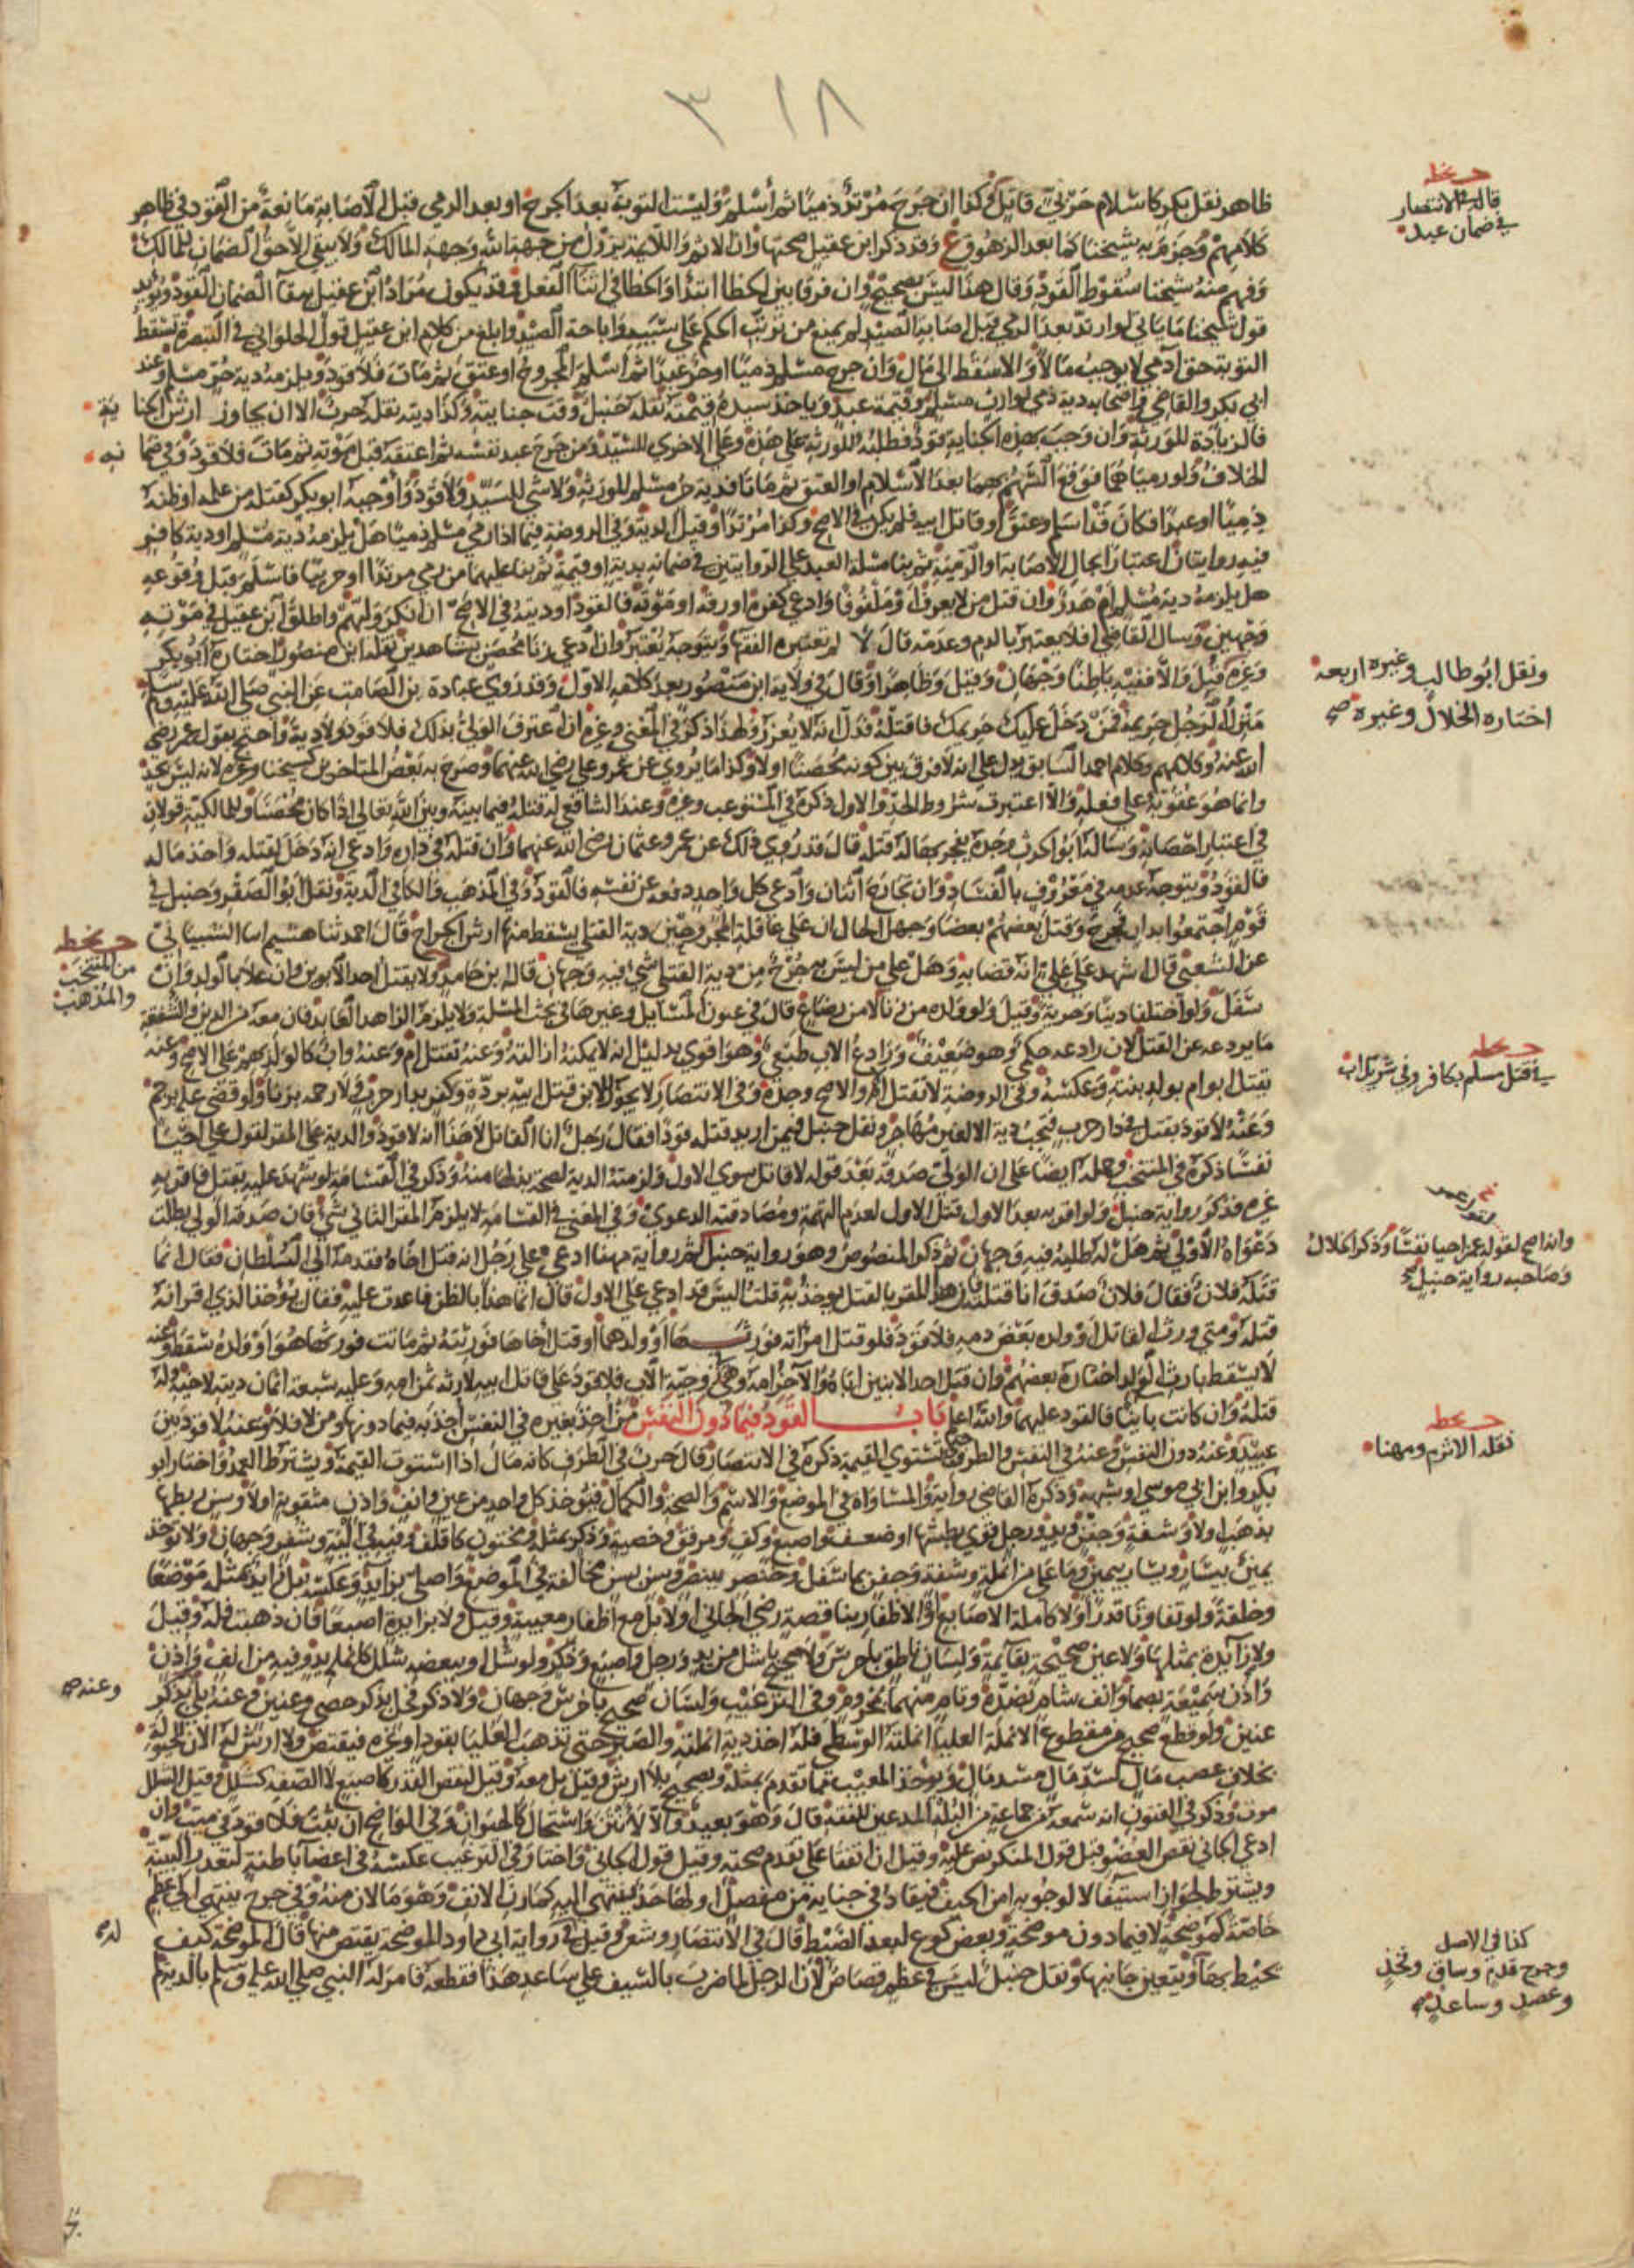 ٣١٨
ظاهر نقل بكر كاسلام حربي قاتل وكذا ان جرح مرتد ذميا ثم اسلم وليست التوبة بعد الجرح او بعد الرمي قبل الاصابة مانعة من القود في ظاهر
كلامهم وجزم به شيخنا كما بعد الزهوق ع وقد ذكر ابن عقيل صحتها وان الاثم واللائمة يزول من جهة الله وجهة المالك ولا يبقى الا حق الضمان للمالك
وفهم منه شيخنا سقوط القود وقال هذا ليس بصحيح وان فرقا بين الخطا ابتدا والخطا في اثنا الفعل وقد يكون مراد ابن عقيل بقا الضمان القود ويؤيد
قول شيخنا ما ياتي لو ارتد بعد الرمي قبل اصابة الصيد لم يمنع من ترتب الحكم على سببه واباحة الصيد وابلغ من كلام ابن عقيل قول الحلواني في التبصرة تسقط
التوبة حق ادمي لا يوجب مالا والا سقط الى مال وان جرح مسلم ذميا او حر عبدا ثم اسلم المجروح او عتق ثم مات فلا قود ويلزمه دية حر مسلم وعند
ابي بكر والقاضي واصحابه دية ذمي لوارث مسلم وقيمة عبد وياخذ سيده قيمته نقله حنبل وقت جنايته وكذا ديته نقله حرب الا ان يجاوز ارش الجنا ية
فالزيادة للورثة وان وجب بهذه الجناية قود فطلبه للورثة على هذه وعلى الاخرى للسيد ومن جرح عبد نفسه ثم اعتقه قبل موته ثم مات فلا قود وفي ضما نه
الخلاف ولو رمياهما فوقع السهم بهما بعد الاسلام او العتق ثم ماتا فدية حر مسلم للورثة ولا شي للسيد ولا قود واوجبه ابو بكر كقتله من علمه او ظنه
ذميا او عبدا فكان قد اسلم وعتق او قاتل ابيه فلم يكن في الاصح وكذا مرتدا وقيل الدية وفي الروضة فيما اذا رمى مسلم ذميا هل يلزمه دية مسلم او دية كافر
فيه روايتان اعتبارا بحال الاصابة او الرمية ثم بنا مسلة العبد على الروايتين في ضمانه بدية او قيمة ثم بنا عليهما من رمى مرتدا او حربيا فاسلم قبل وقوعه
هل يلزمه دية مسلم ام هدر وان قتل من لا يعرف او ملفوفا وادعى كفره او رقه او موته فالقود او ديته في الاصح ان انكر وليهم واطلق ابن عقيل في موته
وجهين وسال القاضي افلا يعتبر بالدم وعدمه قال لا لم يعتبره الفقها ويتوجه يعتبر وان ادعى زنا محصن بشاهدين نقله ابن منصور اختاره ابو بكر
وغيره قبل والا ففيه باطنا وجهان وقيل وظاهرا وقال في رواية ابن منصور بعد كلامه الاول وقد روى عبادة بن الصامت عن النبي صلى الله عليه وسلم
منزل الرجل حريمه فمن دخل عليك حريمك فاقتله فدل انه لا يعزر ولهذا ذكر في المغني وغيره ان اعترف الولي بذلك فلا قود ولا دية واحتج بقول عمر رضي
الله عنه وكلامهم وكلام احمد السابق يدل على انه لا فرق بين كونه محصنا اولا وكذا ما يروى عن عمر وعلي رضي الله عنهما وصرح به بعض المتاخرين كشيخنا وغيره لانه ليس بحد
وانما هو عقوبة على فعله والا اعتبرت شروط الحد والاول ذكره في المستوعب وغيره وعند الشافعي له قتله فيما بينه وبين الله تعالى اذا كان محصنا وللمالكية قولان
في اعتبار احصانه وساله ابو الحرث وجده يفجر بها له قتله قال قد روى ذلك عن عمر وعثمان رضي الله عنهما وان قتله في داره وادعى انه دخل لقتله واخذ ماله
فالقود ويتوجه عدمه في معروف بالفساد وان تجارح اثنان وادعى كل واحد دفعه عن نفسه فالقود وفي المذهب والكافي الدية ونقل ابو الصقر وحنبل في
قوم اجتمعوا بدار فجرح وقتل بعضهم بعضا وجهل الحال ان على عاقلة المجروحين دية القتلى يسقط منها ارش الجراح قال احمد ثنا هشيم ابنا الشيباني
عن الشعبي قال اشهد على علي انه قضا به وهل على من ليس به جرح من دية القتلى شي فيه وجهان قاله ابن حامد ولا يقتل احد الابوين وان علا بالولد وان
سفل ولو اختلفا دينا وحرية وقيل ولو ولده من زنا لا من رضاع قال في عيون المسايل وغيرها في بحث المسلة ولا يلزم الزاهد العابد فان معه من الدين والشفقة
ما يردعه عن القتل لان رادعه حكمي وهو ضعيف ورادع الاب طبعي وهو اقوى بدليل انه لا يمكنه ازالته وعنه تقتل ام وعنه واب كالولد بهم على الاصح وعنه
يقتل ابو ام بولد بنته وعكسه وفي الروضة لا تقتل ام والاصح وجدة وفي الانتصار لا يجوز للابن قتل ابيه بردة وكفر بدار حرب ولا رجمه بزنا ولو قضى عليه برجم
وعنه لا قود بقتل في دار حرب فتجب دية الا لغير مهاجر ونقل حنبل فيمن اريد قتله قودا فقال رجل انا القاتل لا هذا انه لا قود والدية على المقر لقول علي احيا
نفسا ذكره في المنتخب وحمله ايضا على ان الولي صدقه بعد قوله لا قاتل سوى الاول ولزمته الدية لصحة بذلها منه وذكر في القسامة لو شهد عليه بقتل فاقر به
غيره فذكر رواية حنبل ولو اقر به بعد الاول قتل الاول لعدم التهمة ومصادقته الدعوى وفي المغني في القسامة لا يلزم المقر الثاني شي فان صدقه الولي بطلت
دعواه الاولى ثم هل له طلبه فيه وجهان ثم ذكر المنصوص وهو رواية حنبل ثم رواية مهنا ادعى على رجل انه قتل اخاه فقدمه الى السلطان فقال انما
قتله فلان فقال فلان صدق انا قتلته فان هذا المقر بالقتل يوخذ به قلت اليس قد ادعى على الاول قال انما هذا بالظن فاعدت عليه فقال يؤخذ الذي اقر انه
قتله ومتى ورث القاتل او ولده بعض دمه فلا قود فلو قتل امراته فورثها او ولدهما او قتل اخاها فورثته ثم ماتت فورثها هو او ولده سقط وعنه
لا يسقط بارث الولد اختاره بعضهم وان قتل احد الابنين اباه والاخر امه وهي زوجة الاب فلا قود على قاتل ابيه لارثه ثمن امه وعليه سبعة اثمان ديته لاخيه وله
قتله وان كانت باينا فالقود عليهما والله اعلم باب القود فيما دون النفس من اخذ بغيره في النفس اخذ به فيما دونها ومن لا فلا وعنه لا قود بين
عبيد وعنه دون النفس وعنه في النفس والطرف حتى تستوي القيمة ذكره في الانتصار قال حرب في الطرف كانه مال اذا استوت القيمة ويشترط العمد واختار ابو
بكر وابن ابي موسى او شبهه وذكره القاضي رواية والمساواة في الموضع والاسم والصحة والكمال فيؤخذ كل واحد من عين وانف واذن مثقوبة اولا وسن ربطها
بذهب اولا وشفة وجفن ويد ورجل قوي بطشها او ضعف واصبع وكف ومرفق وخصية وذكر بمثله ومختون كاقلف وفيه في الية وشفر وجهان ولا توخذ
يمين بيسار ويسار بيمين وما على من انملة وشفة وجفن بما سفل وخنصر ببنصر وسن بسن مخالفة في الموضع واصلي بزايد وعكسه بل زايد بمثله موضعا
وخلقة ولو تفاوتا قدرا ولا كاملة الاصابع او الاظفار بناقصة رضي الجاني اولا بل مع اظفار معيبة وقيل ولا بزايدة اصبعا فان ذهبت فله وقيل
ولا زايدة بمثلها ولا عين صحيحة بقايمة ولسان ناطق باخرس ولا صحيح باشل من يد ورجل واصبع وذكر ولو شل او ببعضه شلل كانملة يد وفيه من انف واذن
واذن سميعة بصما وانف شام بضده وتام منهما بمخروم وفي الترغيب ولسان صحيح باخرس وجهان ولا ذكر فحل بذكر خصي وعنين وعنه بلى بذكر
عنين ولو قطع صحيح من مقطوع الانملة العليا انملته الوسطى فله اخذ دية انملته والصبر حتى تذهب العليا بقود او غيره فيقتص ولا ارش له الان للحيلولة
بخلاف غصب مال لسد مال مسد مال ويؤخذ المعيب مما تقدم بمثله وبصحيح بلا ارش وقيل بل معه وقيل لنقص القدر كاصبع لا الصفة كشلل وقيل الشلل
موت وذكر في الفنون انه سمعه من جماعة من البله المدعين للفقه قال وهو بعيد والا لانتن واستحال كالحيوان وفي الواضح ان ثبت فلا قود في ميت وان
ادعى الجاني نقص العضو قبل قول المنكر نص عليه وقيل ان اتفقا على تقدم صحته وقيل قول الجاني واختار في الترغيب عكسه في اعضا باطنة لتعذر البينة
ويشترط لجواز استيفا لا لوجوبه امن الحيف فيقاد في جناية من مفصل او لها حد ينتهي اليه كمارن الانف وهو ما لان منه وفي جرح ينتهي الى عظم
خاصة كموضحة لا فيما دون موضحة وبعض كوع لبعد الضبط قال في الانتصار وشعر وقيل في رواية ابي داود الموضحة يقتص منها قال الموضحة كيف
يحيط بها ويتعين جانبها ونقل حنبل ليس في عظم قصاص لان الرجل لما ضرب بالسيف على ساعد هذا فقطعه فامر له النبي صلى الله عليه وسلم بالدية ثم
حـ بخطه
قاله في الانتصار
في ضمان عبد
ونقل ابو طالب وغيره اربعة
اختاره الخلال وغيره صح
حـ بخطه
من المنتخب
والمذهب
حـ بخطه
في قتل مسلم بكافر وفي شريك اب
وانه اصح لقول عمر احيا نفسا وذكر الخلال
وصاحبه رواية حنبل صح
حـ بخطه
نقله الاثرم ومهنا
وعنه صح
له صح
كذا في الاصل
وجرح قدم وساق وفخذ
وعضد وساعد صح